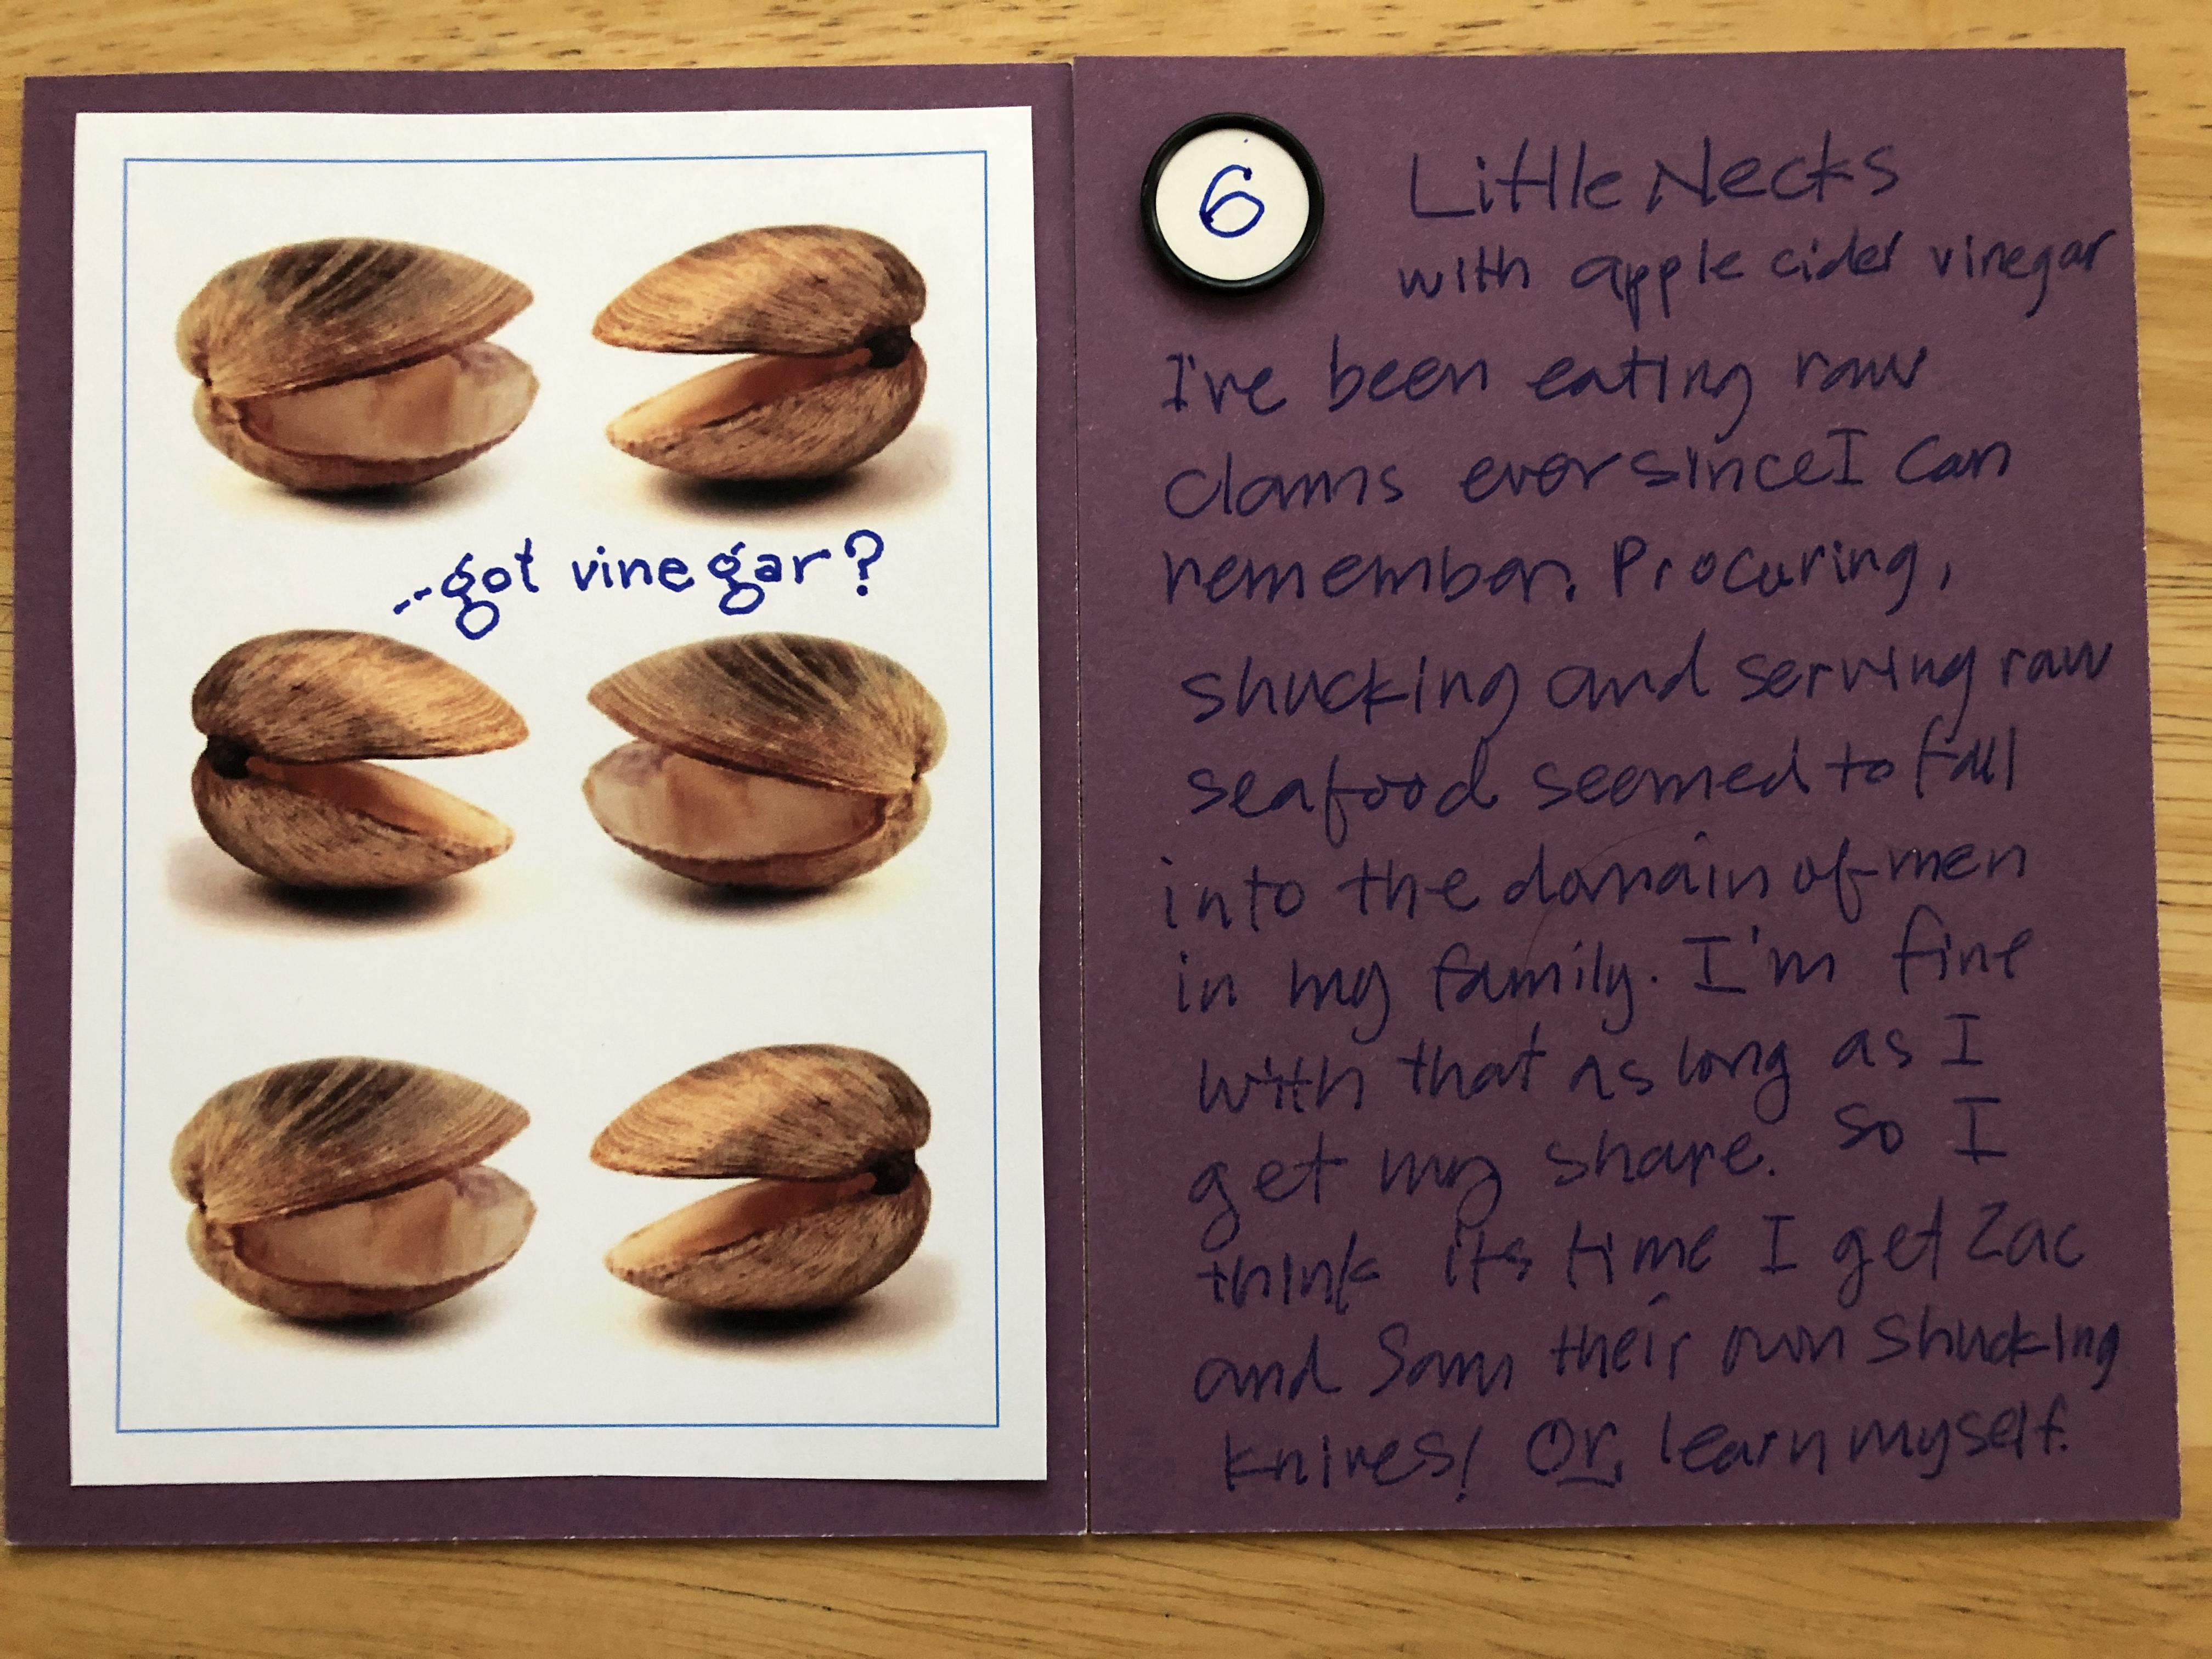 ...got vinegar?
6
Little Necks
with apple cider vinegar
I've been eating raw
clams ever since I can
remember. Procuring,
shucking and serving raw
seafood seemed to fall
into the domain of men
in my family. I'm fine
with that as long as I
get my share. So I
think its time I get Zac
and Sam their own shucking
knives! Or, learn myself.